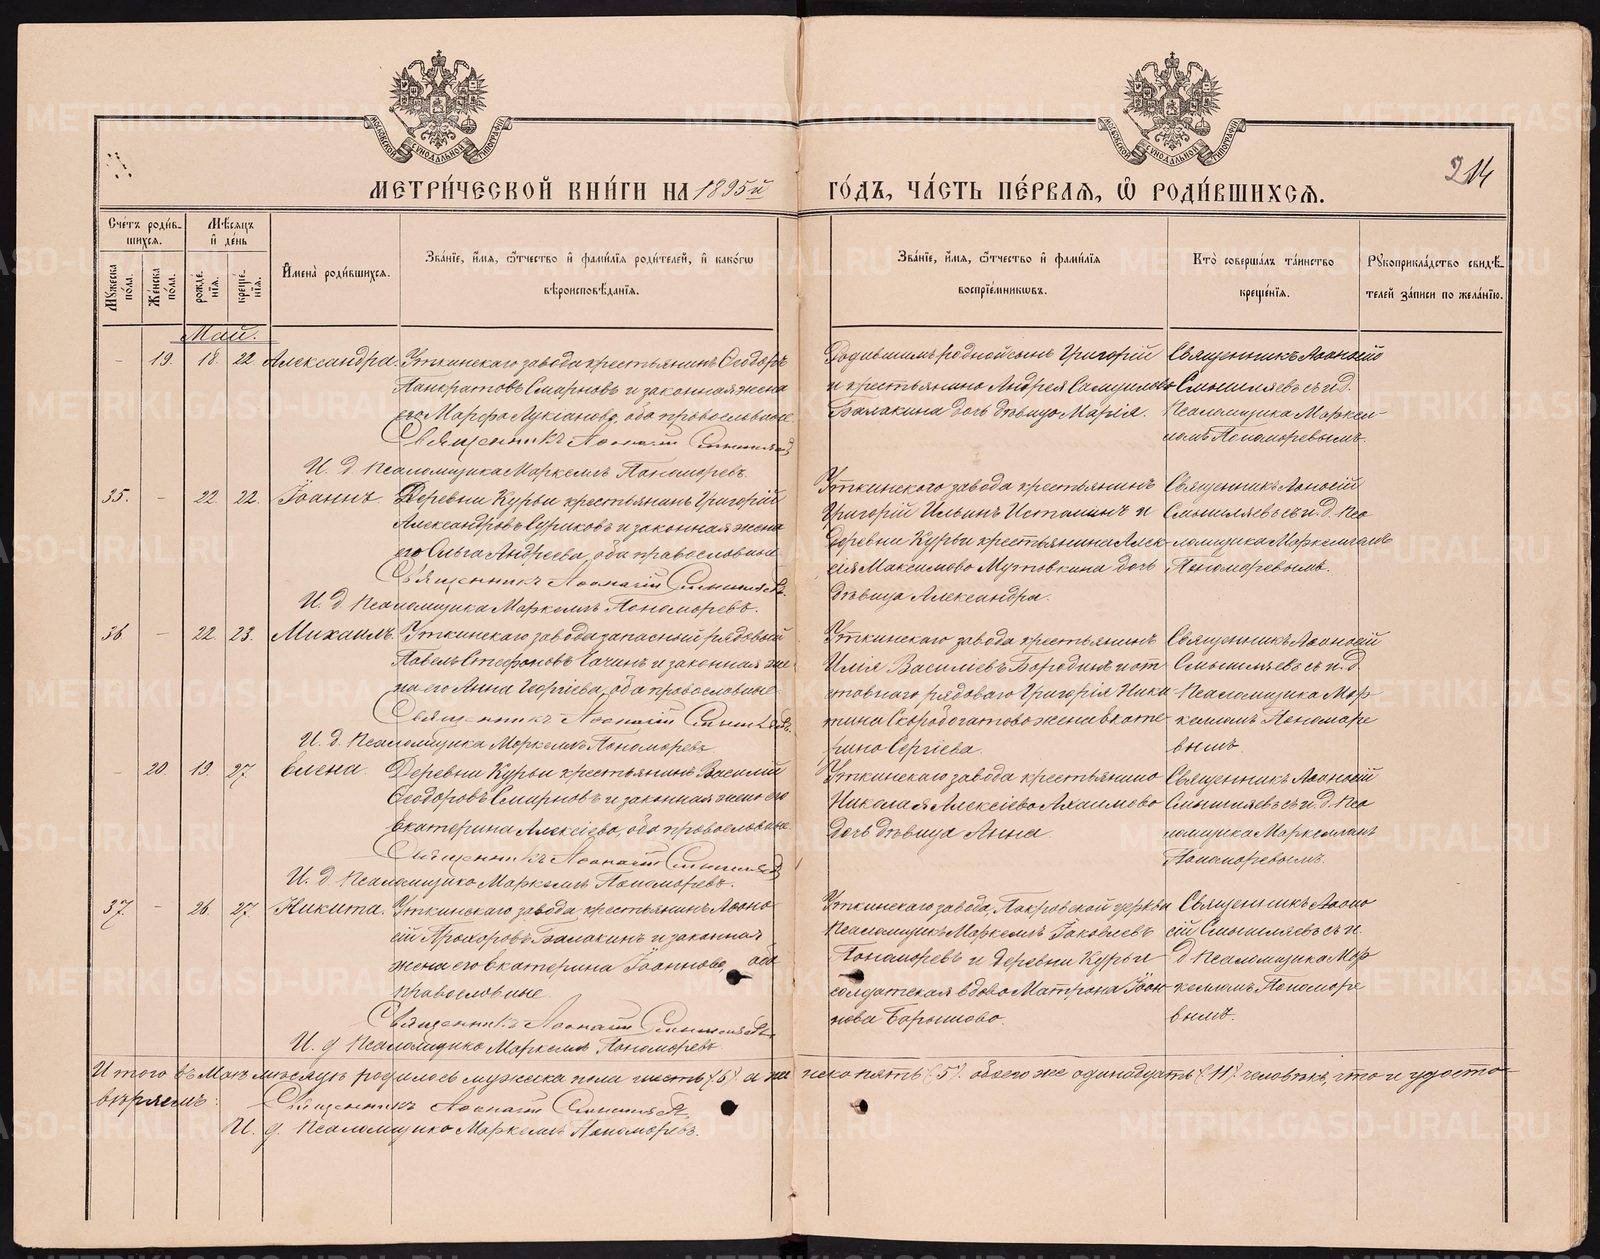 МЕТРИ́ЧЕСКОЙ КНИ́ГИ НА 1895й ГО́ДЪ, ЧА́СТЬ ПЕ́РВАЯ, Ѡ РОДИ́ВШИХСЯ.
214
Сче́тъ роди́вшихся.
Мѣ́сяцъ и де́нь
Му́жеска по́ла.
Же́нска по́ла.
рожде́нїя.
креще́нїя.
Имена̀ роди́вшихся.
Зва́нїе, и́мя, ѻ́тчество и фами́лїя роди́телей, и како́гѡ вѣроисповѣ́данїя.
Зва́нїе, и́мя, ѻ́тчество и фами́лїя воспрїе́мникѡвъ.
Кто̀ соверша́лъ та́инство креще́нїя.
Рукоприкла́дство свидѣ́телей за́писи по жела́нїю.
Май.
- 19. 18. 22. Александра.
Уткинскаго завода крестьянинъ Ѳеодоръ
Панкратовъ Смирновъ и законная жена
его Марфа Лукіанова, оба православные
Священникъ Аѳонасій Смышляевъ
И. д. Псаломщика Маркеллъ Пономоревъ.
Родившимъ родной сынъ Григорій
и крестьянина Андрея Самуилова
Балакина дочь дѣвица Марія.
Священникъ Аѳонасій
Смышляевъ съ и. д.
Псаломщика Маркел-
ломъ Пономоревымъ.
35. - 22. 22. Іоаннъ.
Деревни Курьи крестьянинъ Григорій
Александровъ Суриковъ и законная жена
его Ольга Андреева, оба православные
Священникъ Аѳонасій Смышляевъ.
И. д. Псаломщика Маркеллъ Пономоревъ.
Уткинскаго завода крестьянинъ
Григорій Ильинъ Истоминъ и
Деревни Курьи крестьянина Алек-
сѣя Максимова Мутовкина дочь
дѣвица Александра.
Священникъ Аѳонасій
Смышляевъ съ и. д. Пса
ломщика Маркелломъ
Пономоревымъ.
36 - 22. 23. Михаилъ.
Уткинскаго завода запасный рядовый
Павелъ Стефановъ и законная же
на его Анна Георгіева, оба православные
Священникъ Аѳонасій Смышляевъ.
И. д. Псаломщика Маркеллъ Пономоревъ
Уткинскаго завода крестьянинъ
Илія Василіевъ Бородинъ и от
ставнаго рядоваго Григорія Ники
тина Скоробогатова жена Екате
рина Сергіева.
Священникъ Аѳонасій
Смышляевъ съ и. д.
Псаломщика Мар
келломъ Пономоре
вымъ.
- 20. 19. 27. Елена.
Деревни Курьи крестьянинъ Василій
Ѳеодоровъ Смирновъ и законная жена его
Екатерина Алексіева, оба православные.
Священникъ Аѳонасій Смышляевъ
И. д. Псаломщика Маркеллъ Пономоревъ.
Уткинскаго завода крестьянина
Николая Алексіева
дочь дѣвица Анна.
Священникъ Аѳонасій
Смышляевъ съ и. д. Пса
ломщика Маркелломъ
Пономоревымъ.
37. - 26. 27. Никита.
Уткинскаго завода, крестьянинъ Аѳона-
сій Прохоровъ Балакинъ и законная
жена его Екатерина Іоаннова, оба
православные.
Священникъ Аѳонасій Смышляевъ.
И. д. Псаломщика Маркеллъ Пономоревъ
Уткинскаго завода, Покровской церкви
Псаломщикъ Маркеллъ Іаковлевъ
Пономоревъ и Деревни Курьи
солдатская вдова Матрона Іоан-
нова Барышова.
Священникъ Аѳона
сій Смышляевъ съ и.
д. Псаломщика Мар
келломъ Пономоре
вымъ.
Итого въ Маѣ мѣсяцѣ родилось мужска пола шесть (6) а женска пять (5) обоего же одинадцать (11) человѣкъ, что и удосто-
вѣряемъ:
Священникъ Аѳонасій Смышляевъ.
И. д. Псаломщика Маркеллъ Пономоревъ.